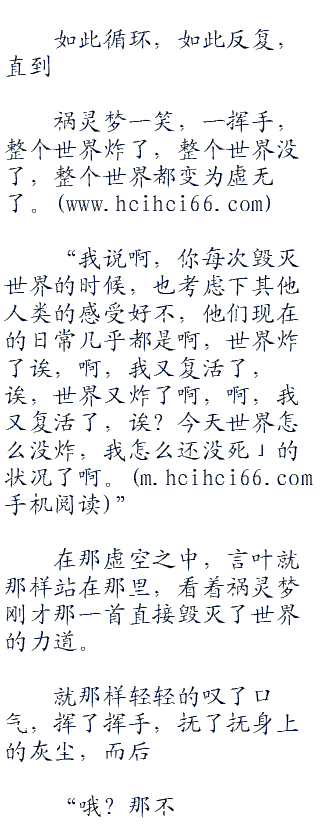 如此循环，如此反复，
直到
祸灵梦一笑，一挥手，
整个世界炸了，整个世界没
了，整个世界都变为虚无
了。(www.hcihci66.com)
“我说啊，你每次毁灭
世界的时候，也考虑下其他
人类的感受好不，他们现在
的日常几乎都是啊，世界炸
了诶，啊，我又复活了，
诶，世界又炸了啊，啊，我
又复活了，诶？今天世界怎
么没炸，我怎么还没死」的
状况了啊。(m.hcihci66.com
手机阅读)”
在那虚空之中，言叶就
那样站在那里，看着祸灵梦
刚才那一首直接毁灭了世界
的力道。
就那样轻轻的叹了口
气，挥了挥手，抚了抚身上
的灰尘，而后
“哦？那不